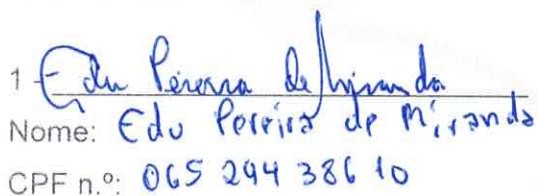 1 Edu Pereira de Miranda
Nome: Edu Pereira de Miranda
CPF n.º: 065 294 386 10